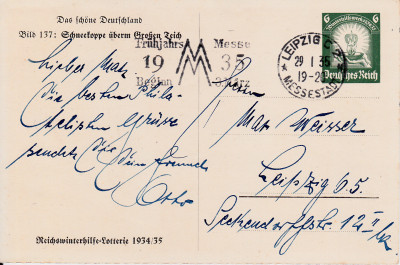 Das schöne Deutschland
Bild 137: Schneekoppe überm Großen Teich
Frühjahrs Messe
19 M 35
Beginn 3. März
LEIPZIG C 2
29 1 35
19-20
MESSESTADT
6 6
Winterhilfswerk
Deutsches Reich
Lieber Max
die besten Phila-
telisten Grüße
sendet Dir
Dein Freund
Otto
Herrn
Max Weisser
Leipzig O 5.
Seckendorffstr. 12 II
Reichswinterhilfe-Lotterie 1934/35